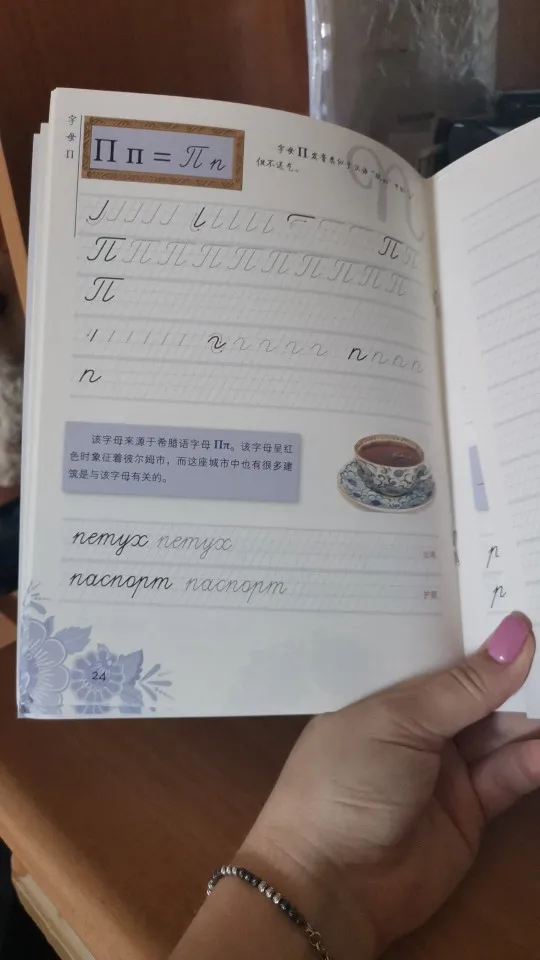 字母 П
П п = П п
字母 П 发音类似于汉语
但不送气。
П П П П П П П П П П
П
п п п п
п
该字母来源于希腊语字母 Ππ。该字母呈红
色时象征着彼尔姆市，而这座城市中也有很多建
筑是与该字母有关的。
петух петух
паспорт паспорт 护照
24
р
р